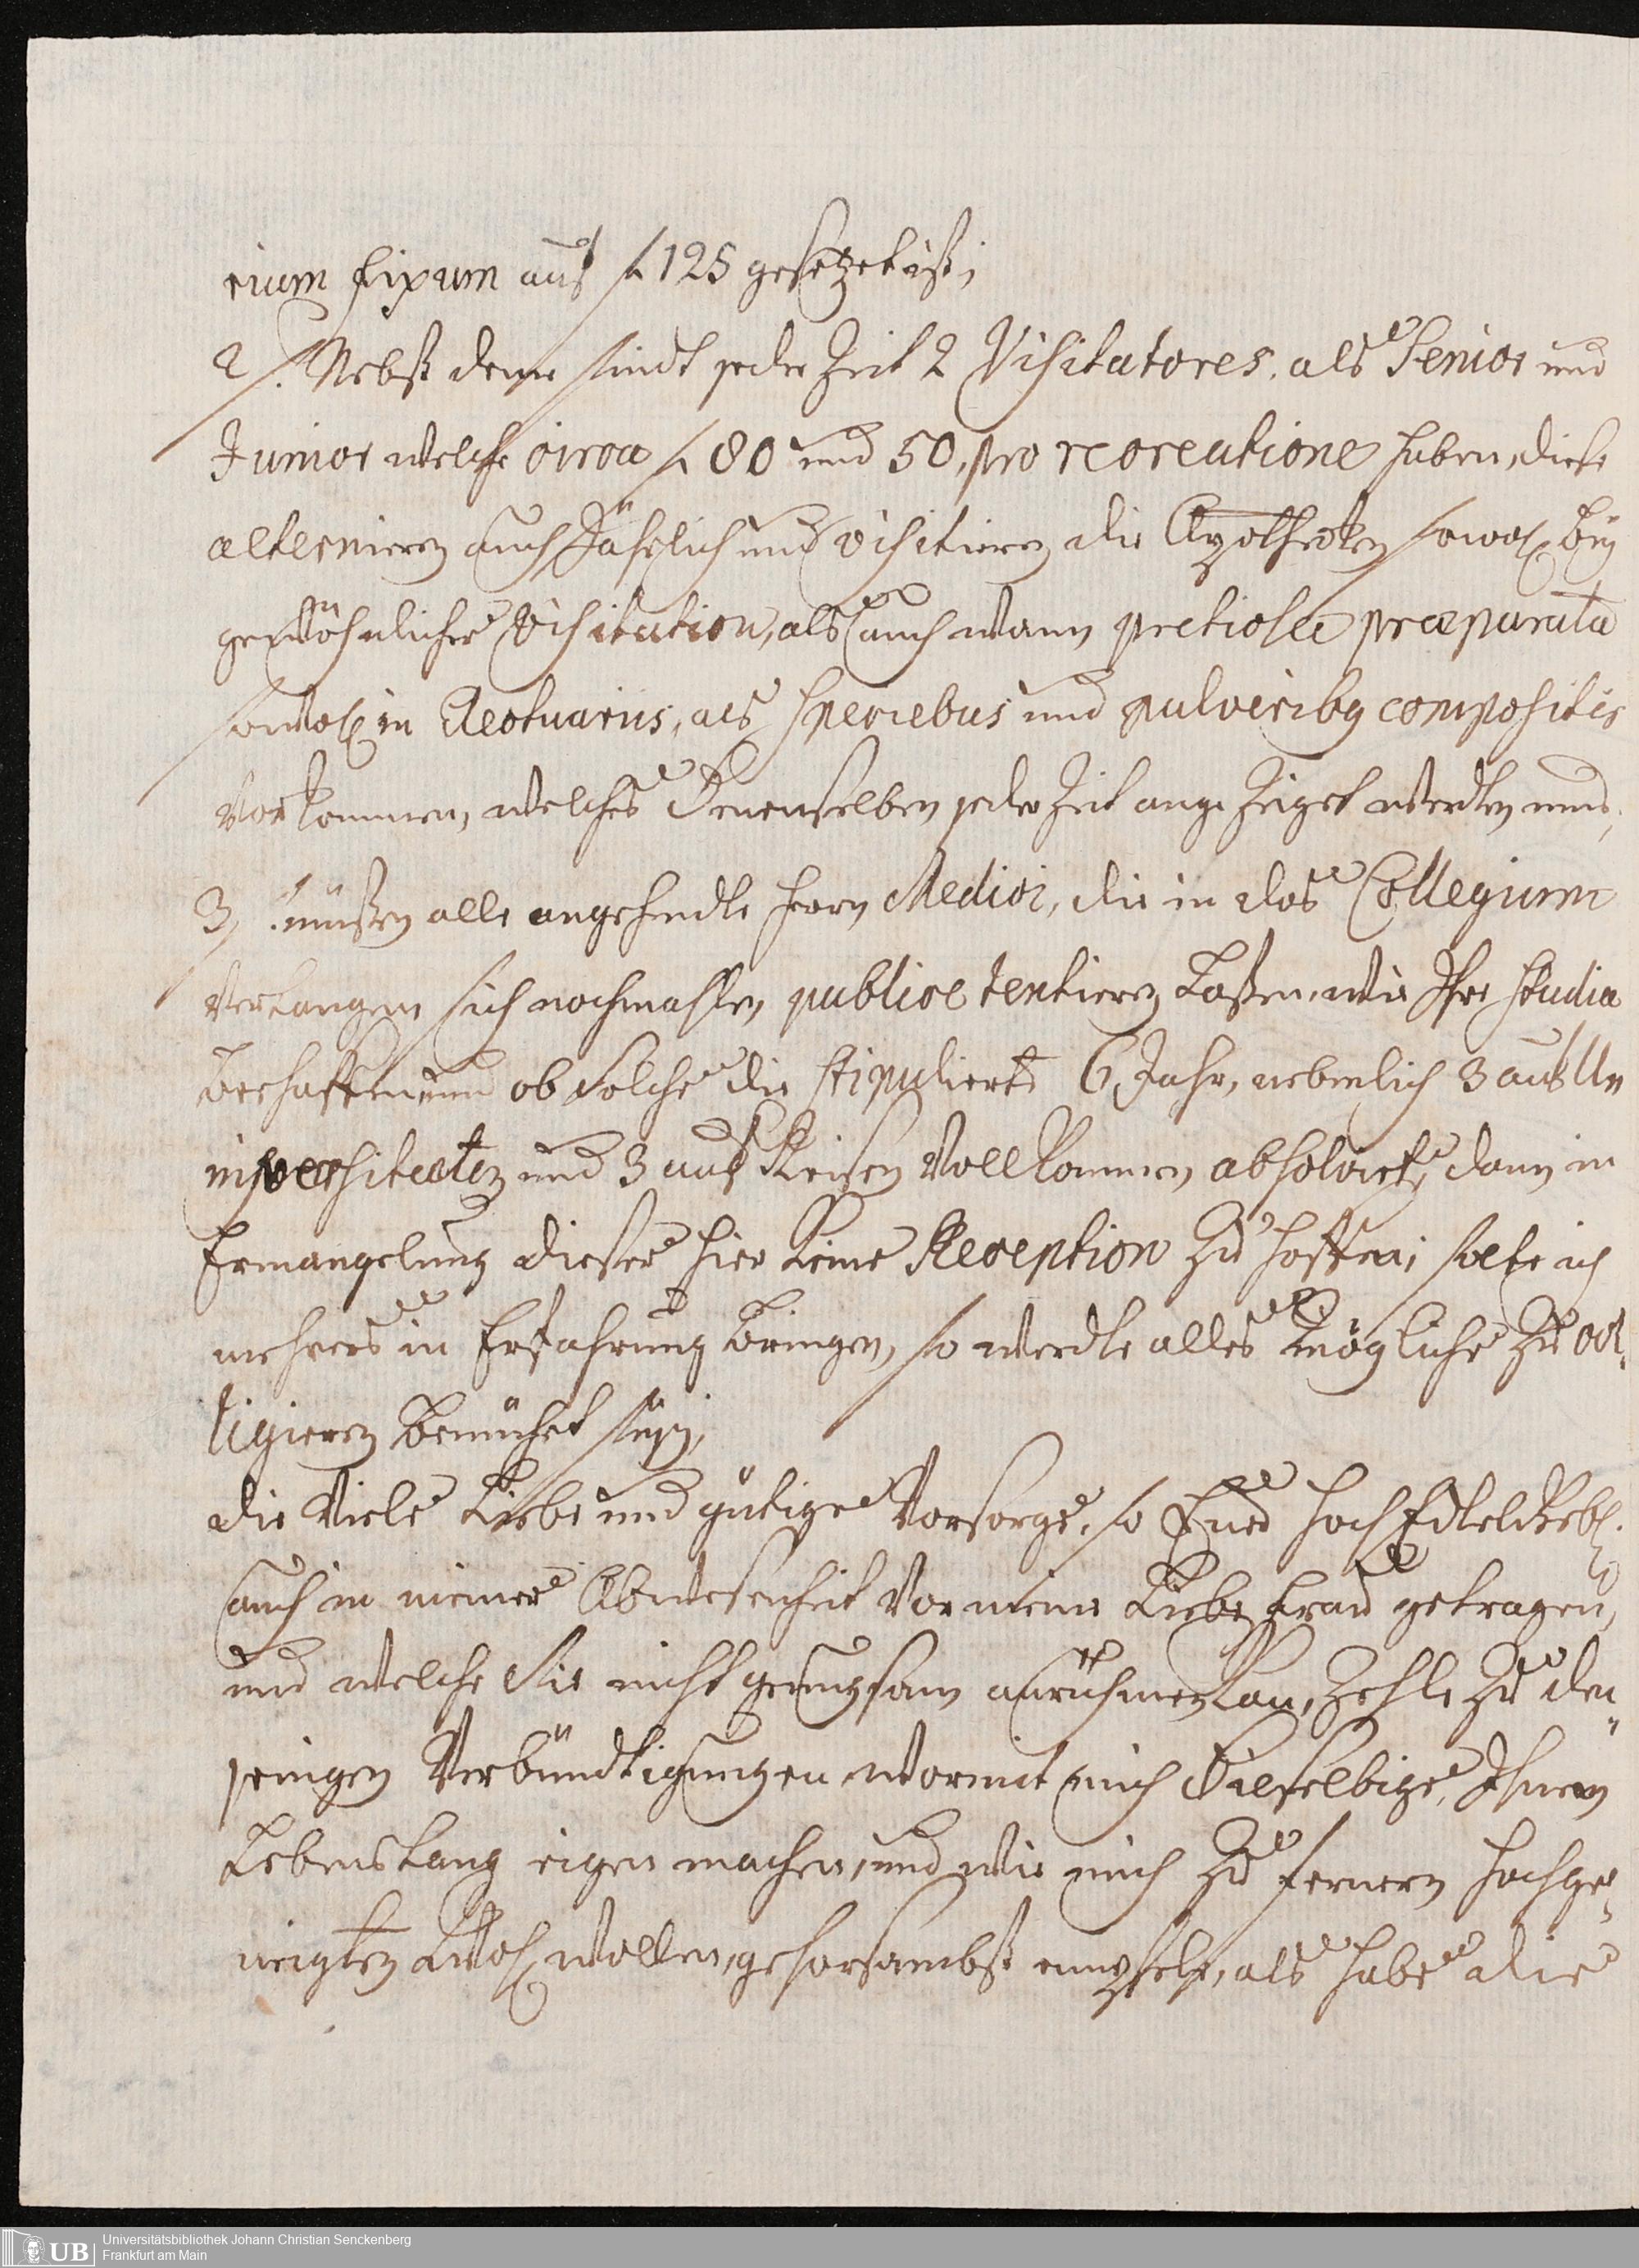 rium fixum auf f. 125 gesetzet ist;
2. Nebst deme sindt jeder Zeit 2 Visitatores, als Senior und
Junior welche circa f. 80 und 50, pro recreatione haben, diese
alternieren auch Jährlich und visitieren die Apothecken sowohl bey
gewöhnlicher Visitation, als auch wann pretiosa præparata
sowohl in Electuariis, als Speciebus und pulveribus compositis
Vorkommen, welches Denenselben jeder Zeit angezeiget werden mus,
3. müßen alle angehendte Herrn Medici, die in das Collegium
Verlangen sich nochmahlen publice tentieren laßen, wie Ihre studia
beschaffen und ob solche die stipulierte 6 Jahr, nehmlich 3 auf Un
iversiteten und 3 auf Reisen Vollkommen absolviert, dann in
Ermangelung dieser hier keine Reception zu hoffen; solte ich
mehrers in Erfahrung bringen, so werdte alles mögliche zu col
ligieren bemühet seyn,
die Viele Liebe und gütige Vorsorge, so Euer HochEdel
auch in meiner Abwesenheit Vor meine Liebe Frau getragen,
und welche Sie nicht genugsam anrühmen kan, Zehle zu den
jenigen Verbündtigungen, wormit mich Dieselbige, Ihnen
Lebenslang eigen machen, und wie mich zu fernern hochge
neigten Wohlwollen, gehorsambst empfehle, als habe die
Universitätsbibliothek Johann Christian Senckenberg
UB Frankfurt am Main